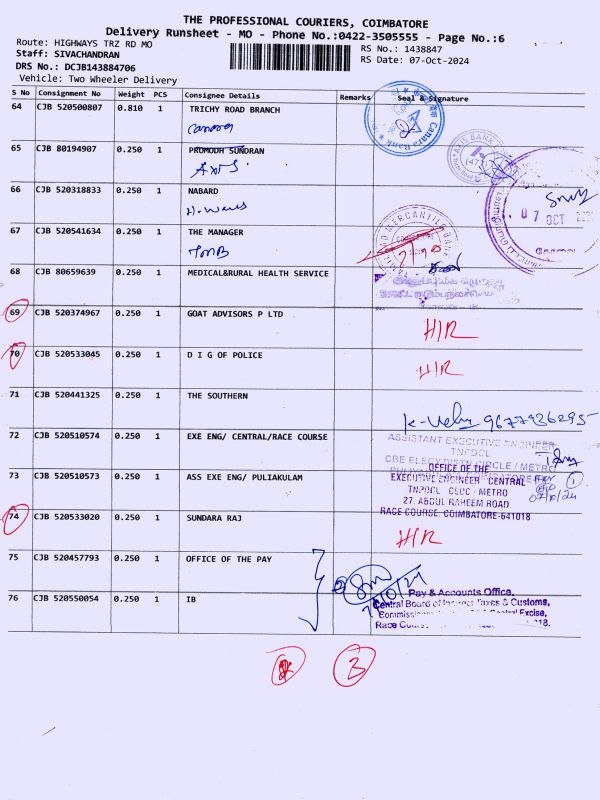 THE PROFESSIONAL COURIERS, COIMBATORE
Delivery Runsheet - MO - Phone No.:0422-3505555 - Page No.:6
Route: HIGHWAYS TRZ RD MO
Staff: SIVACHANDRAN
DRS No.: DCJB143884706
Vehicle: Two Wheeler Delivery
RS No.: 1438847
RS Date: 07-Oct-2024
S No Consignment No Weight PCS Consignee Details Remarks Seal & Signature
64 CJB 520500807 0.810 1 TRICHY ROAD BRANCH
Canara
Canara Bank
65 CJB 80194907 0.250 1 PROMODH SUNDRAN
AXIS
AXIS BANK
66 CJB 520318833 0.250 1 NABARD
07 OCT
67 CJB 520541634 0.250 1 THE MANAGER
TMB
MERCANTILE BANK
68 CJB 80659639 0.250 1 MEDICAL&RURAL HEALTH SERVICE
69 CJB 520374967 0.250 1 GOAT ADVISORS P LTD
H/R
70 CJB 520533045 0.250 1 D I G OF POLICE
H/R
71 CJB 520441325 0.250 1 THE SOUTHERN
9677936295
72 CJB 520510574 0.250 1 EXE ENG/ CENTRAL/RACE COURSE
ASSISTANT EXECUTIVE ENGINEER
TNPDCL
CBE ELECY DISTN CIRCLE / METRO
73 CJB 520510573 0.250 1 ASS EXE ENG/ PULIAKULAM
OFFICE OF THE
EXECUTIVE ENGINEER CENTRAL
TNPDCL CEDC / METRO
27, ABDUL RAHEEM ROAD,
RACE COURSE, COIMBATORE-641018
07/10/24
74 CJB 520533020 0.250 1 SUNDARA RAJ
H/R
75 CJB 520457793 0.250 1 OFFICE OF THE PAY
76 CJB 520550054 0.250 1 IB
Pay & Accounts Office,
Central Board of Indirect Taxes & Customs,
Central Excise,
3